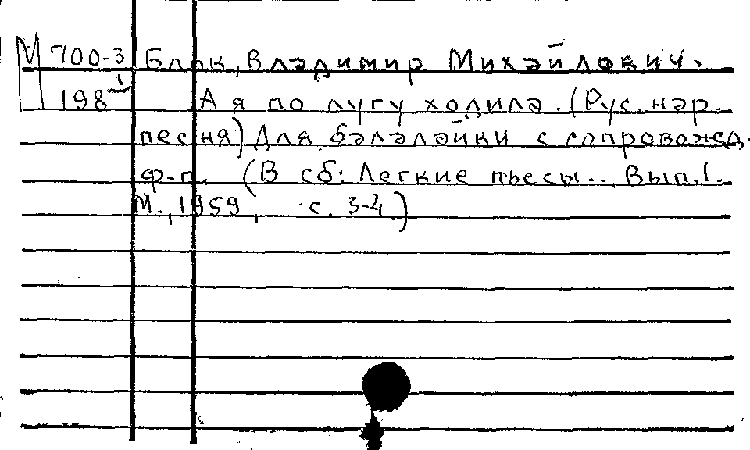 М 700-3 Блок, Владимир Михайлович.
198 А я по лугу ходила. (Рус. нар.
песня) Для балалайки с сопровожд.
ф-п. (В сб: Легкие пьесы... Вып.1.
М., 1959, с. 3-4.)